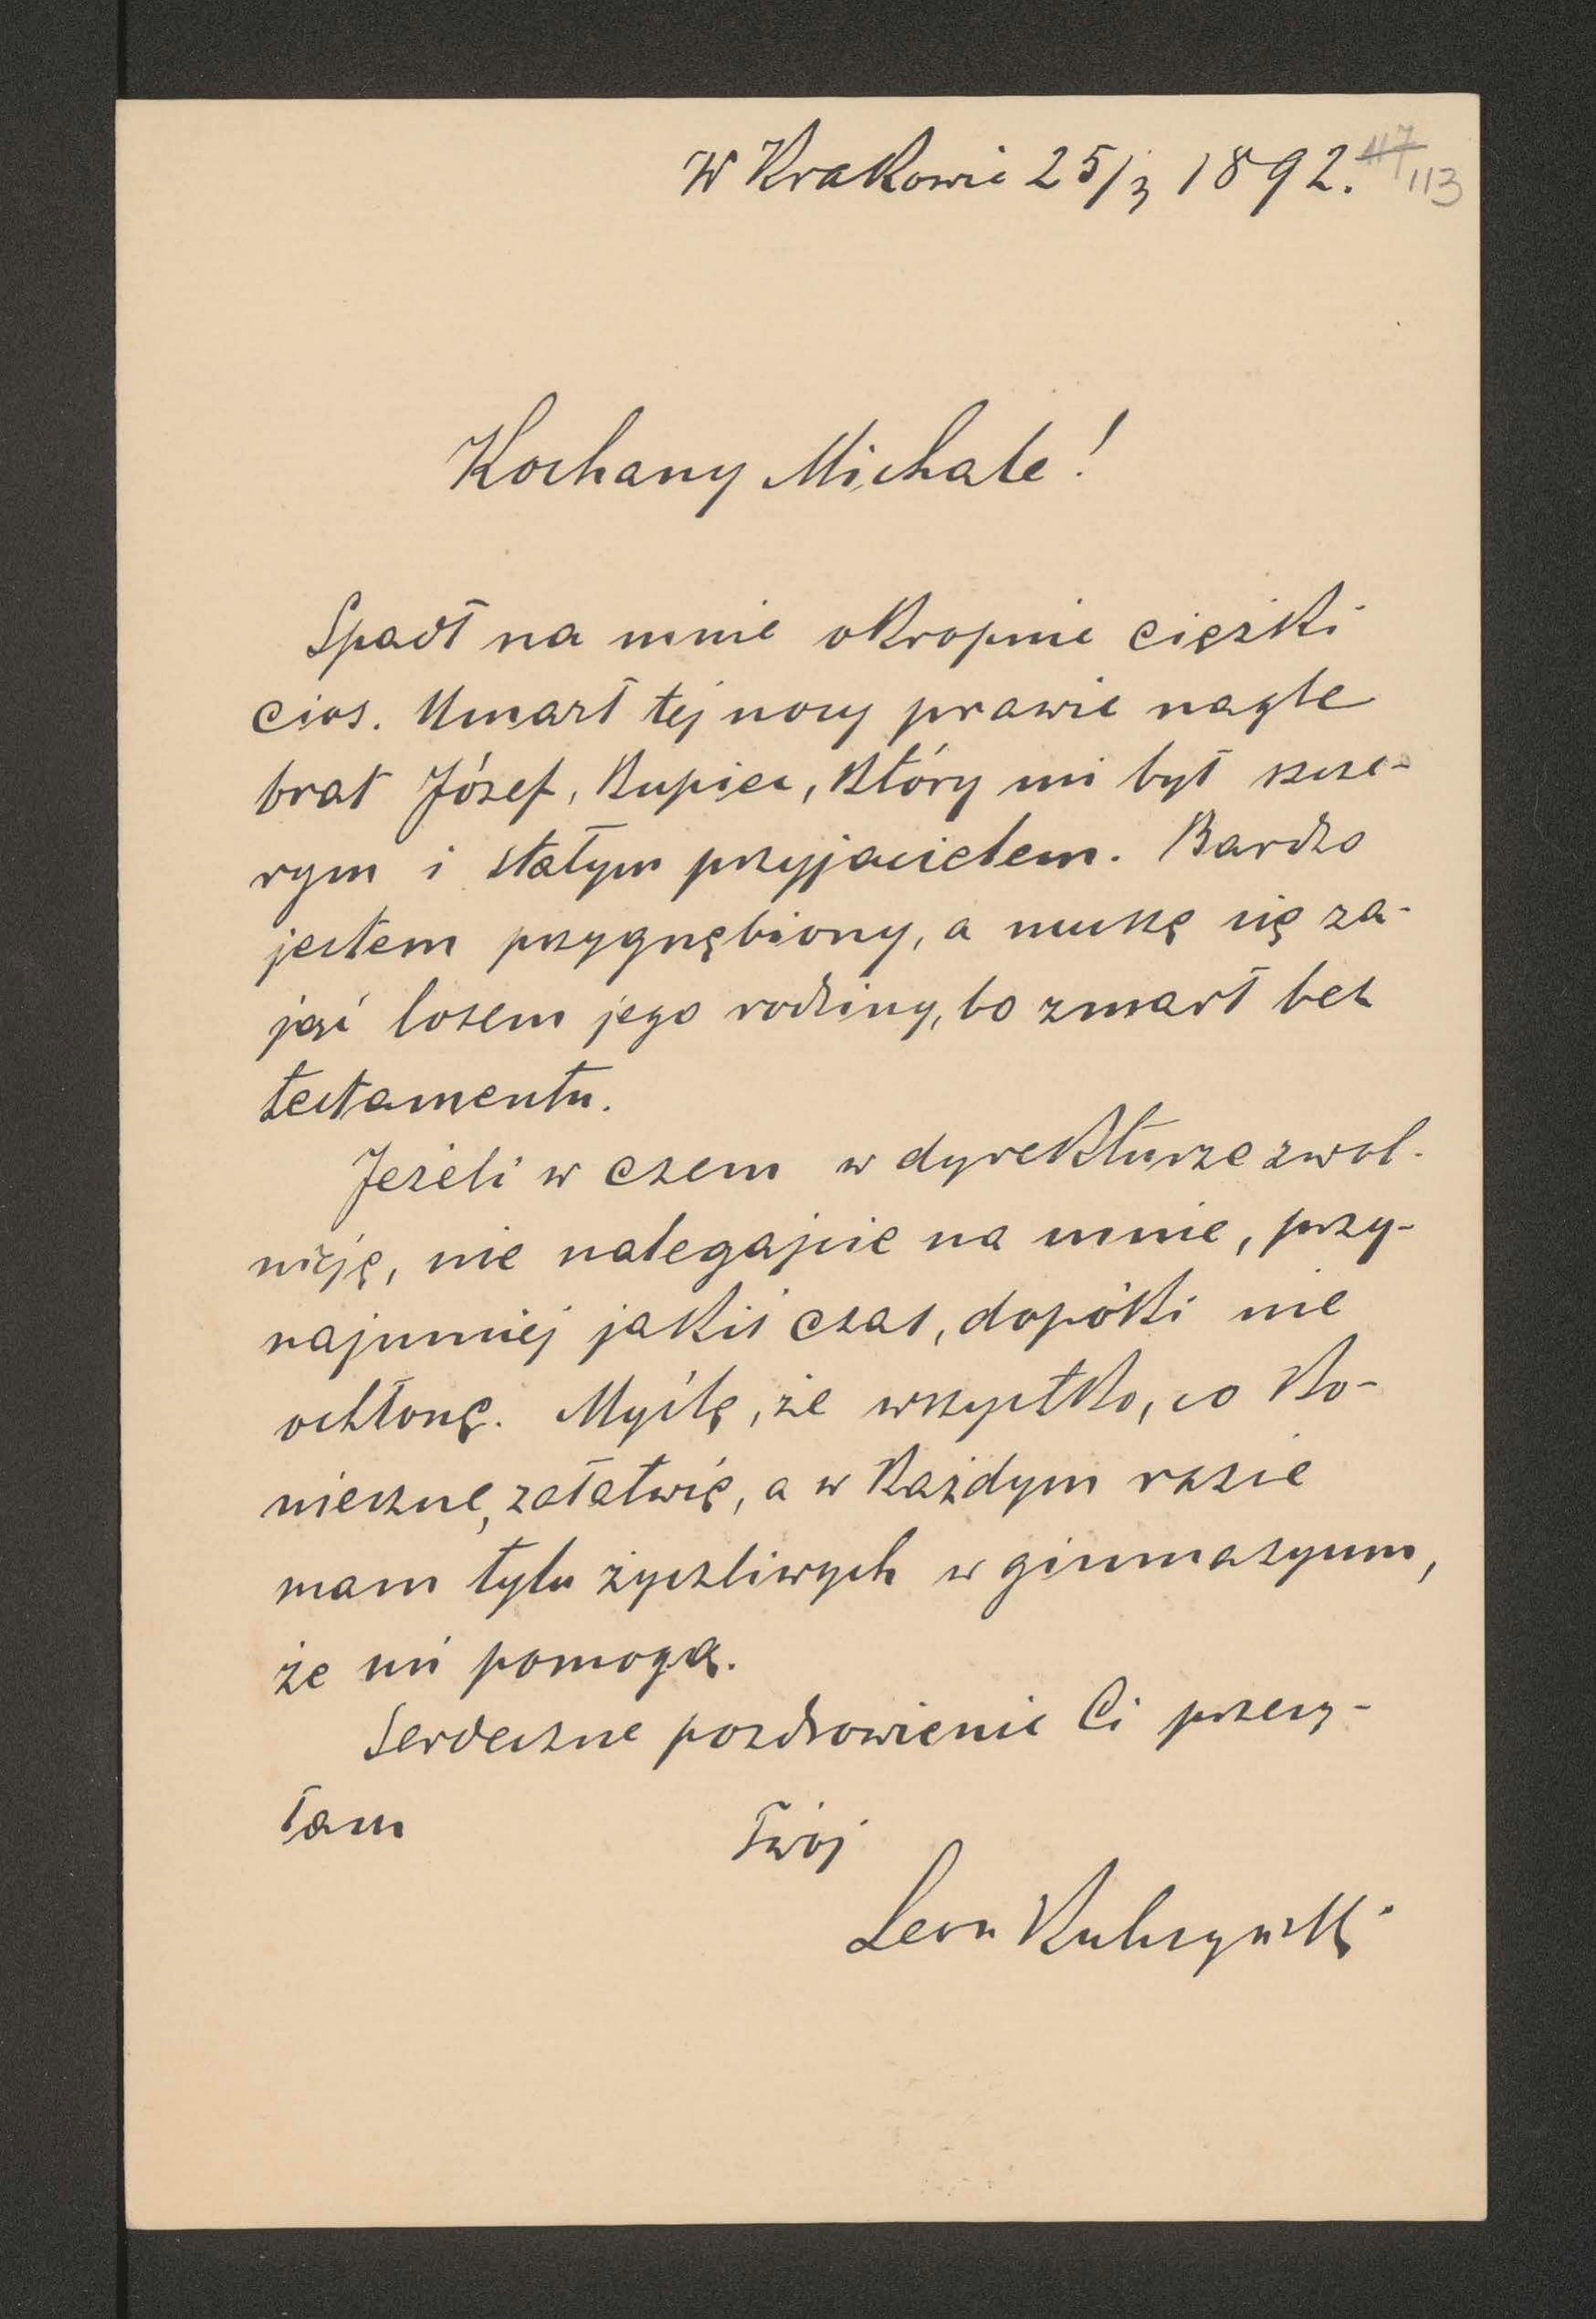 W Krakowie 25/3 1892.
117
113
Kochany Michale!
Spadł na mnie okropnie ciężki
cios. Umarł tej nocy prawie nagle
brat Józef, kupiec, który mi był szcze-
rym i stałym przyjacielem. Bardzo
jestem przygnębiony, a muszę się za-
jąć losem jego rodziny, bo zmarł bez
testamentu.
Jeżeli w czem w dyrekturze zwol-
nieję, nie nalegajcie na mnie, przy-
najmniej jakiś czas, dopóki nie
ochłonę. Myślę, że wszystko, co ko-
nieczne, załatwię, a w każdym razie
mam tylu życzliwych w gimnazyum,
że mi pomogą.
Serdeczne pozdrowienie Ci przesy-
łam
Twój
Leon Kulczyński